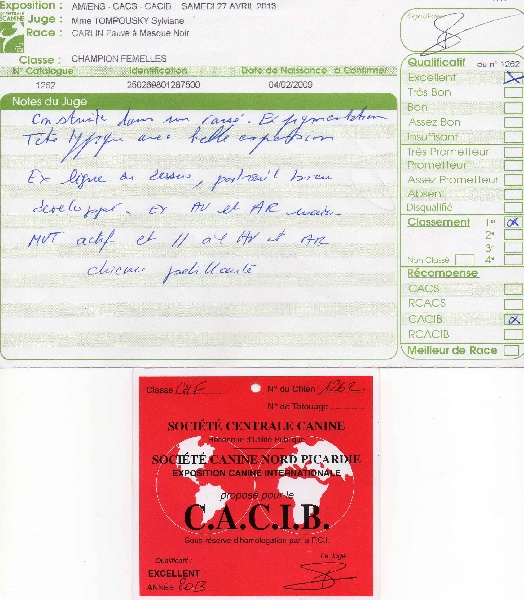 Exposition : AMIENS - CACS - CACIB SAMEDI 27 AVRIL 2013
CENTRALE CANINE
Juge : Mme TOMPOUSKY Sylviane
Race : CARLIN Fauve à Masque Noir
Classe : CHAMPION FEMELLES
N° Catalogue Identification Date de Naissance à Confirmer
1262 250269801287500 04/02/2009
Notes du Juge
Construite dans un carré. Ex pigmentation
Tête typique avec belle expression
Ex ligne de dessus, poitrail bien
développé. Ex AV et AR
MVT actif et // à l'AV et AR
chienne pétillante
Signature
Qualificatif du n° 1262
Excellent
Très Bon
Bon
Assez Bon
Insuffisant
Très Prometteur
Prometteur
Assez Prometteur
Absent
Disqualifié
Classement 1er
2e
3e
Non Classé 4e
Récompense
CACS
RCACS
CACIB
RCACIB
Meilleur de Race
Classe CHF N° du Chien 1262
N° de Tatouage
SOCIÉTÉ CENTRALE CANINE
Reconnue d'Utilité Publique
SOCIÉTÉ CANINE NORD PICARDIE
EXPOSITION CANINE INTERNATIONALE
proposé pour le
C.A.C.I.B.
Sous réserve d'homologation par la F.C.I.
Qualificatif : Le Juge
EXCELLENT
ANNÉE 2013